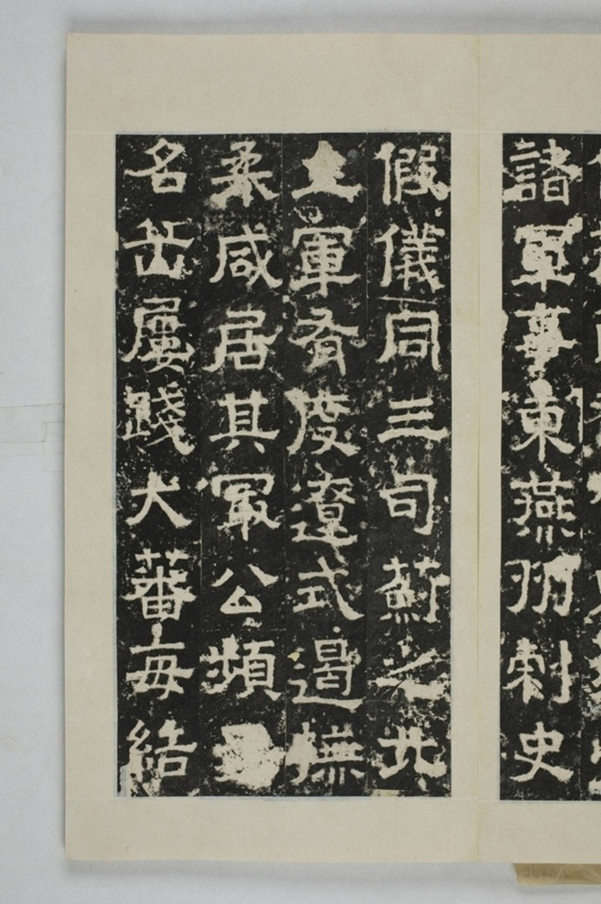 諸軍事東燕州刺史
假儀同三司薊之北
軍度遼式遏撫
柔咸居其冣公頻
名岳屢踐大蕃每結